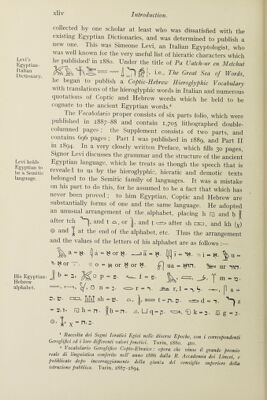 xliv
Introduction.
collected by one scholar at least who was dissatisfied with the
existing Egyptian Dictionaries, and was determined to publish a
new one. This was Simeone Levi, an Italian Egyptologist, who
was well known for the very useful list of hieratic characters which
he published¹ in 1880. Under the title of
i.e., The Great Sea of Words,
he began to publish a Coptic-Hebrew Hieroglyphic Vocabulary
with translations of the hieroglyphic words in Italian and numerous
quotations of Coptic and Hebrew words which he held to be
cognate to the ancient Egyptian words.²
The Vocabolario proper consists of six parts folio, which were
published in 1887-88 and contain 1,705 lithographed double-
columned pages; the Supplement consists of two parts, and
contains 696 pages; Part I was published in 1889, and Part II
in 1894. In a very closely written Preface, which fills 50 pages,
Signor Levi discusses the grammar and the structure of the ancient
Egyptian language, which he treats as though the speech that is
revealed to us by the hieroglyphic, hieratic and demotic texts
belonged to the Semitic family of languages. It was a mistake
on his part to do this, for he assumed to be a fact that which has
never been proved; to him Egyptian, Coptic and Hebrew are
substantially forms of one and the same language. He adopted
an unusual arrangement of the alphabet, placing h and b
after tch, and t, or, and t after sh, and kh (χ)
and at the end of the alphabet, etc. Thus the arrangement
and the values of the letters of his alphabet are as follows :—
Levi's
Egyptian-
Italian
Dictionary.
Levi holds
Egyptian to
be a Semitic
language.
His Egyptian-
Hebrew
alphabet.
¹ Raccolta dei Segni Ieratici Egizi nelle diverse Epoche, con i correspondenti
Geroglifici ed i loro differenti valori fonetici. Turin, 1880. 4to.
² Vocabolario Geroglifico Copto-Ebraico: opera che vinse il grande premio
reale di linguistica conferito nell' anno 1886 dalla R. Accademia dei Lincei, e
pubblicato dopo incoraggiamento della giunta del consiglio superiore della
istruzione pubblica. Turin, 1887-1894.